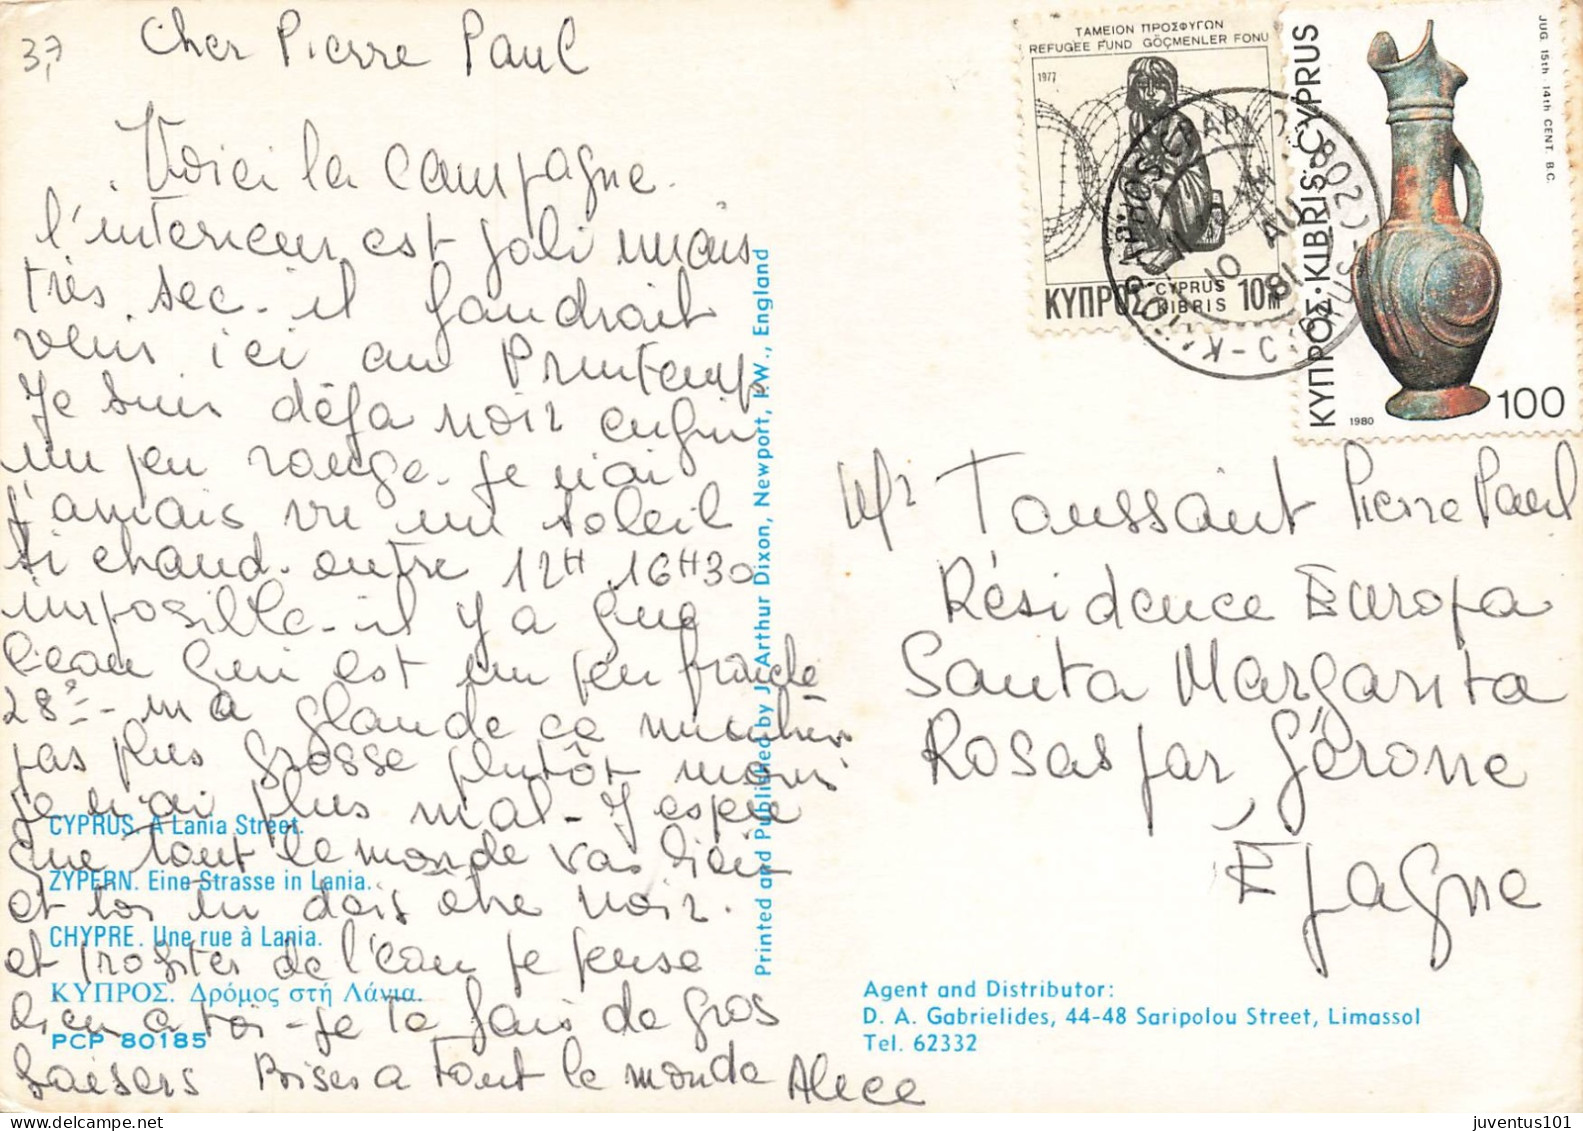 37
Cher Pierre Paul
Voici la campagne.
l'interieur est joli mais
très sec. il faudrait
venir ici au Printemps
Je suis déja noir enfin
un peu rouge. Je n'ai
jamais vu un soleil
si chaud. entre 12H 16H30
impossible. il y a que
l'eau qui est un peu froide
28° - ma glande ca
pas plus grosse plutôt moins
je n'ai plus mal - J'espère
que tout le monde vas bien
et toi tu dois etre noir.
et profites de l'eau je pense
bien a toi - Je te fais de gros
baisers Bises a tout le monde Alice
CYPRUS. A Lania Street.
ZYPERN. Eine Strasse in Lania.
CHYPRE. Une rue à Lania.
ΚΥΠΡΟΣ. Δρόμος στή Λάνια.
PCP 80185
Printed and Published by J. Arthur Dixon, Newport, I.W., England
ΤΑΜΕΙΟΝ ΠΡΟΣΦΥΓΩΝ
REFUGEE FUND GÖÇMENLER FONU
1977
ΚΥΠΡΟΣ CYPRUS KIBRIS 10m
JUG. 15th - 14th CENT. B.C.
ΚΥΠΡΟΣ·KIBRIS·CYPRUS
1980
100
10 AU 81
Mr Toussaint Pierre Paul
Résidence Europa
Santa Margarita
Rosas par Gérone
Espagne
Agent and Distributor:
D. A. Gabrielides, 44-48 Saripolou Street, Limassol
Tel. 62332
juventus101